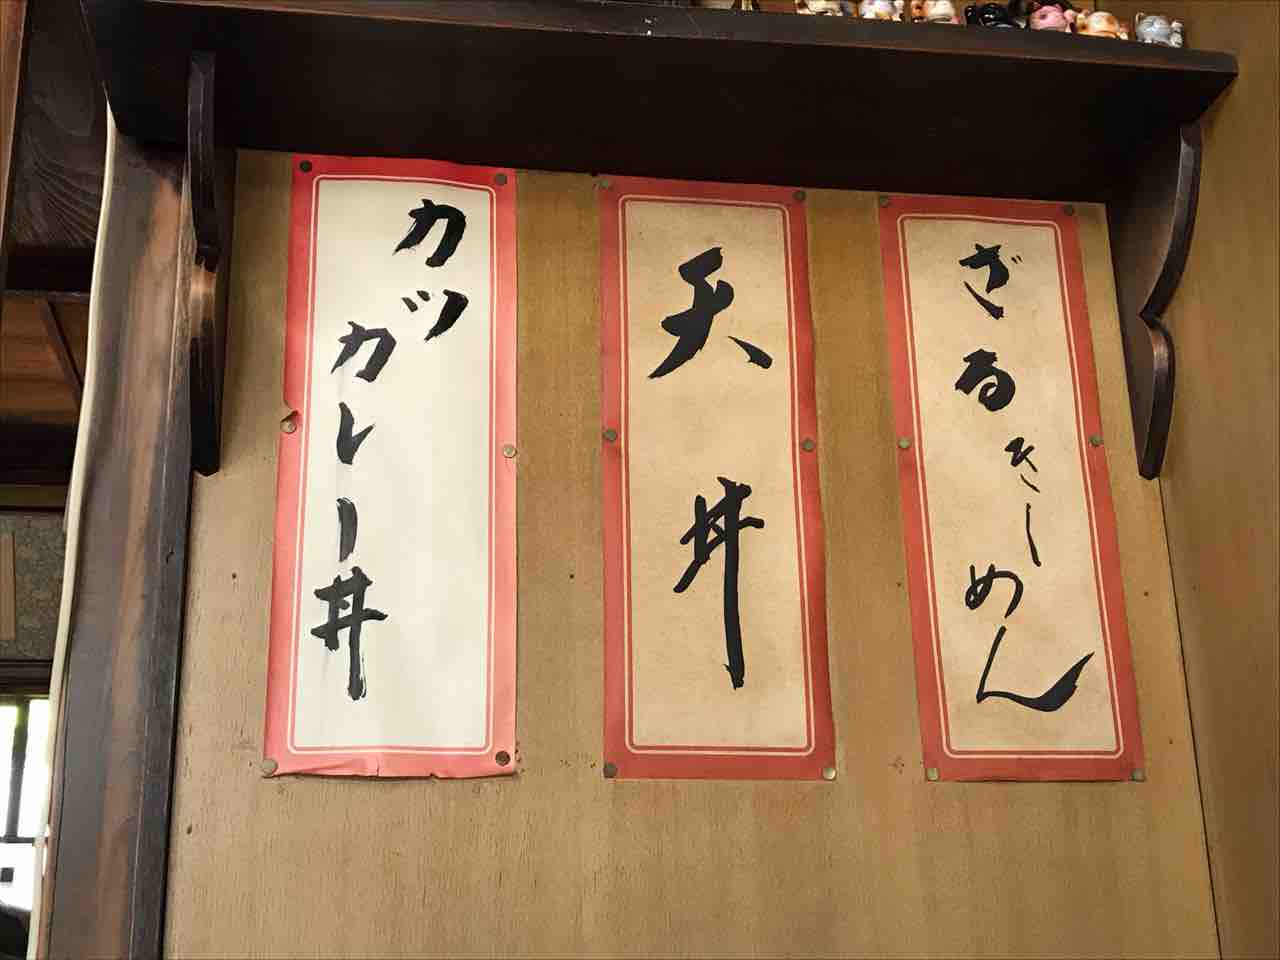 ざるきしめん
天丼
カツ
カレー丼